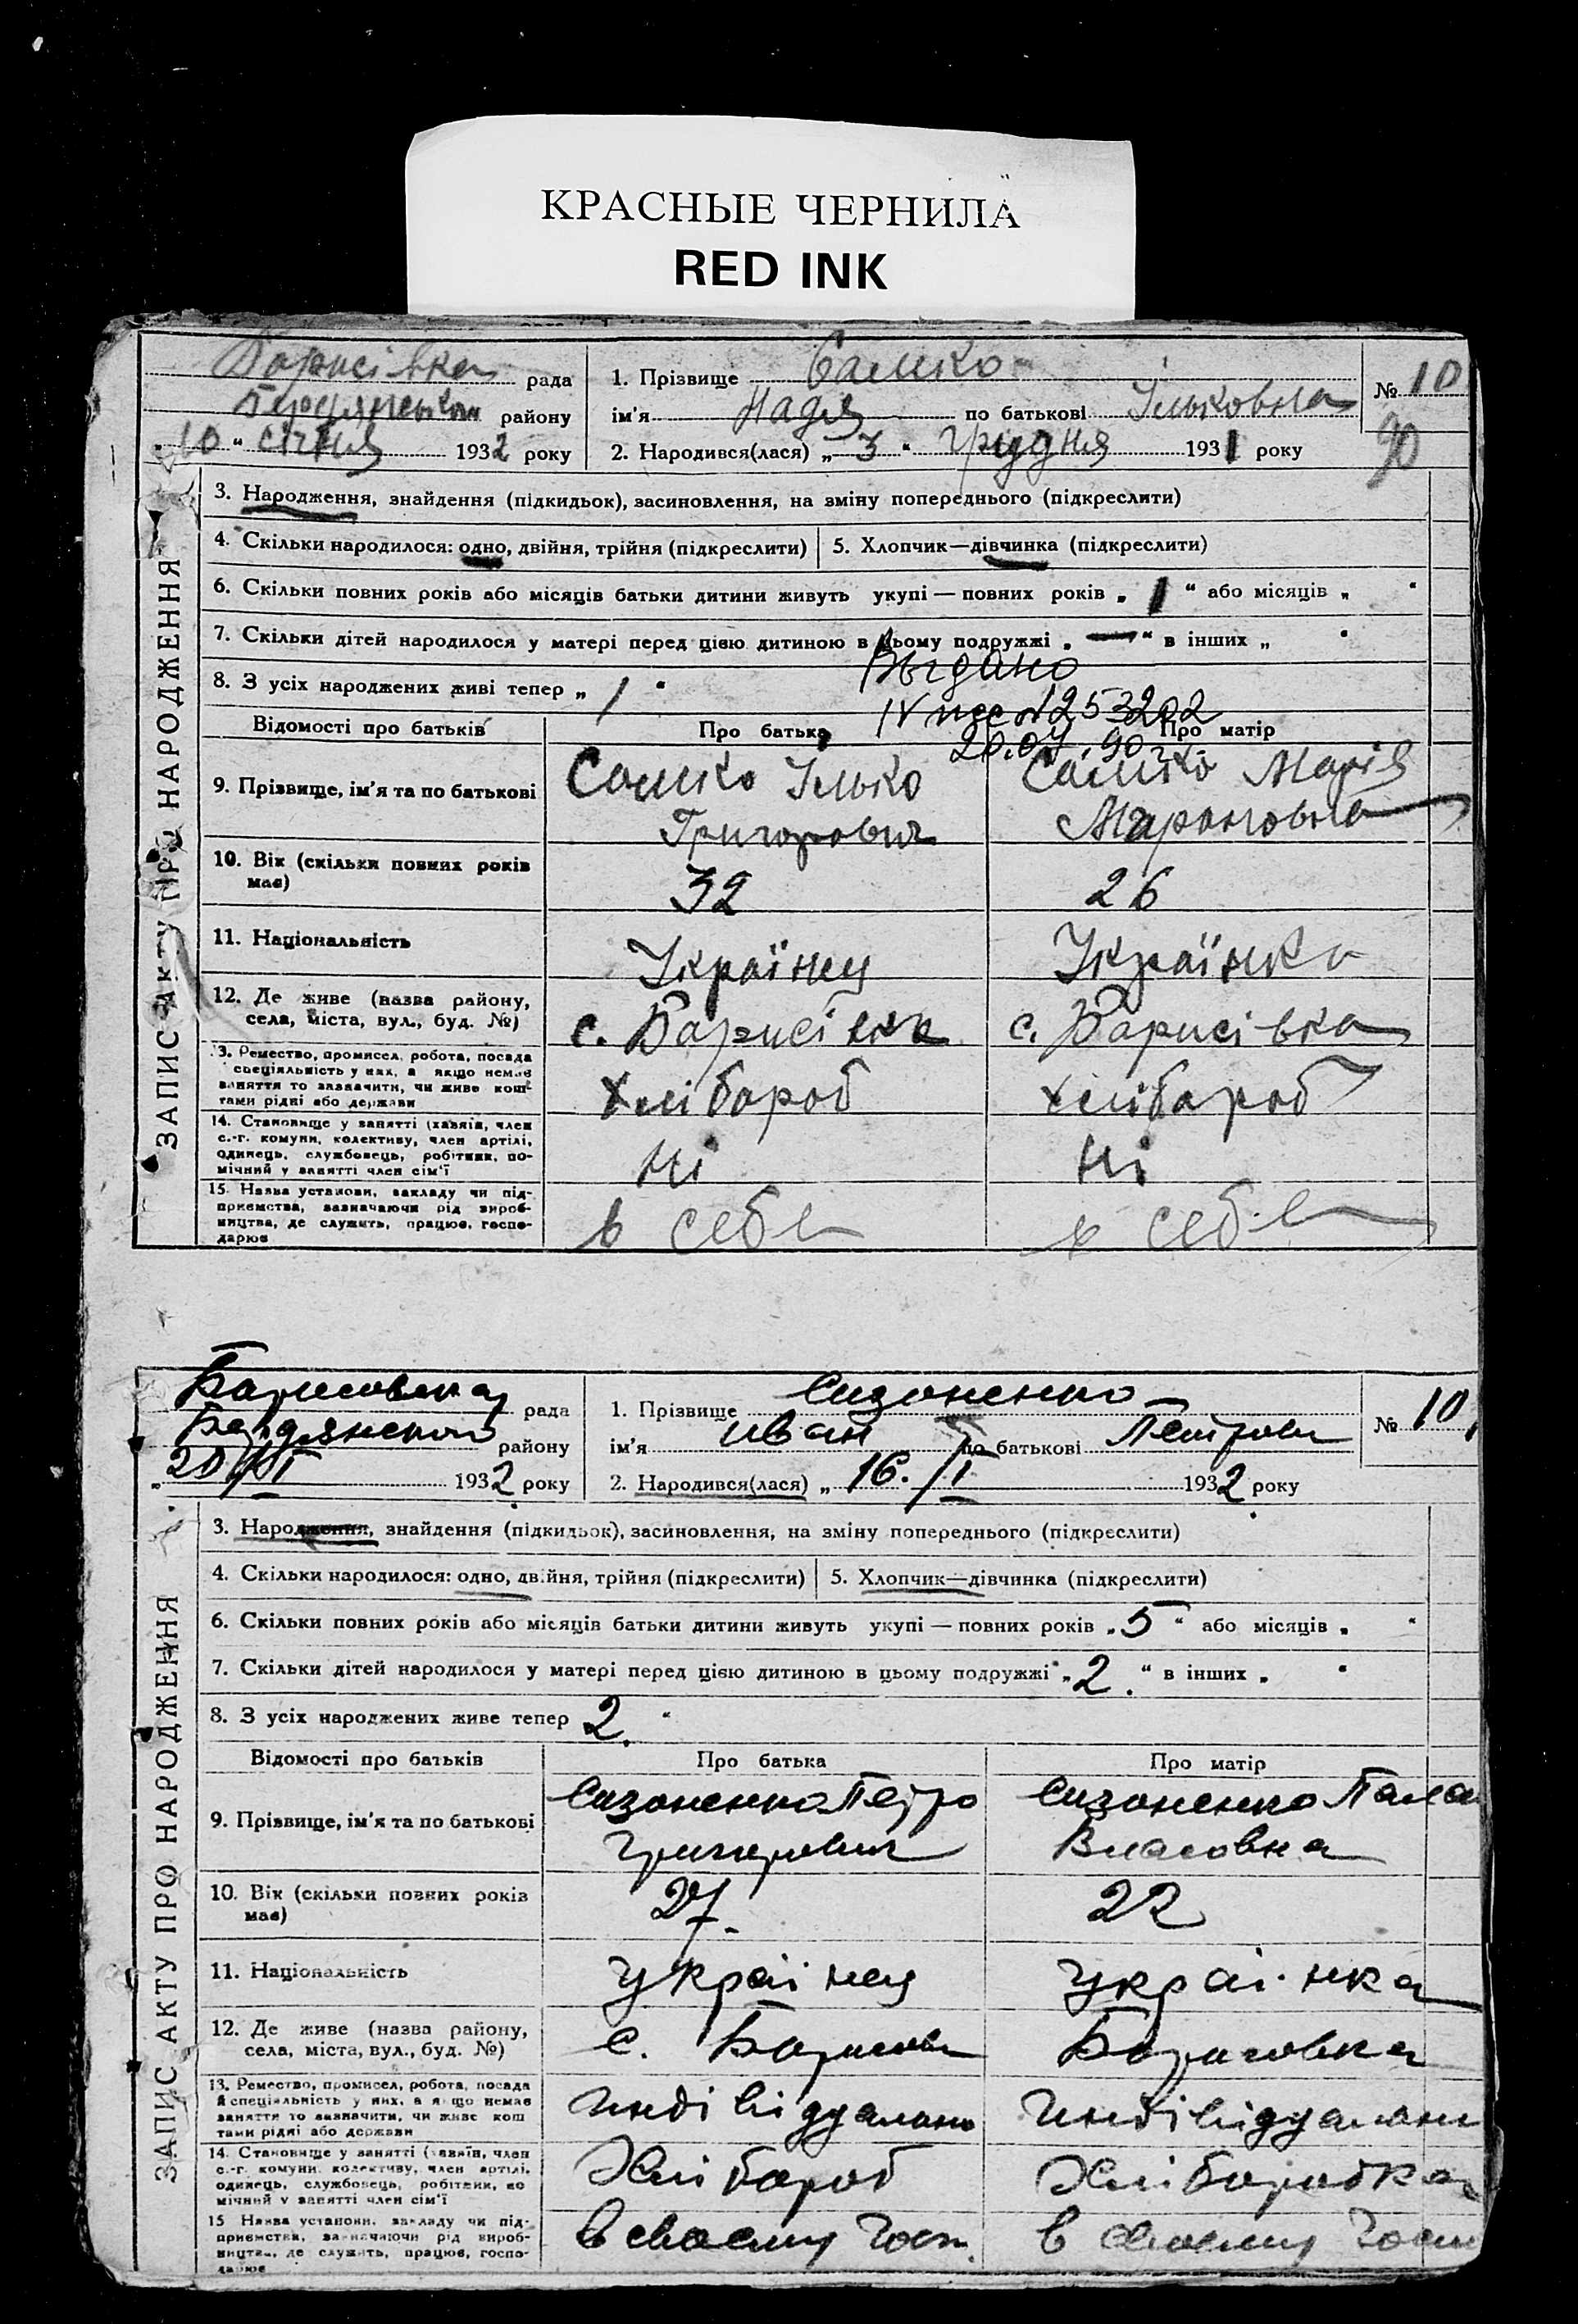 КРАСНЫЕ ЧЕРНИЛА
RED INK
Борисівка рада
району
10 " січня 1932 року
1. Прізвище Сашко
ім'я Надя по батькові Ільковна
2. Народився(лася) „ 3 " Грудня 1931 року
№ 10
90
ЗАПИС АКТУ ПРО НАРОДЖЕННЯ
3. Народження, знайдення (підкидьок), засиновлення, на зміну попереднього (підкреслити)
4. Скільки народилося: одно, двійня, трійня (підкреслити) 5. Хлопчик—дівчинка (підкреслити)
6. Скільки повних років або місяців батьки дитини живуть укупі — повних років „ 1 " або місяців „ "
7. Скільки дітей народилося у матері перед цією дитиною в цьому подружжі „ — " в інших „ "
Выдано
8. З усіх народжених живі тепер „ 1 "
253202
20.07.90
Відомості про батьків Про батька Про матір
9. Прізвище, ім'я та по батькові Сашко Ілько Григорович Сашко Марія Мироновна
10. Вік (скільки повних років має) 32 26
11. Національність Українец Українка
12. Де живе (назва району, села, міста, вул., буд. №) с. Борисівка с. Борисівка
13. Ремество, промисел, робота, посада спеціяльність у них, а якщо немає заняття то зазначити, чи живе коштами рідні або держави Хлібороб хлібороб
14. Становище у занятті (хазяїн, член с.-г. комуни, колективу, член артілі, одинець, службовець, робітник, помічний у занятті член сім'ї Ні Ні
15. Назва установи, закладу чи підприємства, зазначаючи рід виробництва, де служить, працює, господарює в себе в себе
Борисовка рада
Бердянской району
„ 20/ІІ 1932 року
1. Прізвище Сизоненко
ім'я Иван по батькові Петрович
2. Народився(лася) „ 16. /І 1932 року
№ 10
ЗАПИС АКТУ ПРО НАРОДЖЕННЯ
3. Народження, знайдення (підкидьок), засиновлення, на зміну попереднього (підкреслити)
4. Скільки народилося: одно, двійня, трійня (підкреслити) 5. Хлопчик—дівчинка (підкреслити)
6. Скільки повних років або місяців батьки дитини живуть укупі — повних років „ 5 " або місяців „ "
7. Скільки дітей народилося у матері перед цією дитиною в цьому подружжі „ 2. " в інших „ "
8. З усіх народжених живе тепер 2. "
Відомості про батьків Про батька Про матір
9. Прізвище, ім'я та по батькові Сизоненко Петро Григорович Сизоненко Пала Власовна
10. Вік (скільки повних років має) 27. 22
11. Національність Украінец Украінка
12. Де живе (назва району, села, міста, вул., буд. №) с. Борисовк Борисовка
13. Ремество, промисел, робота, посада й спеціяльність у них, а якщо немає заняття то зазначити, чи живе коштами рідні або держави
14. Становище у занятті (хазяїн, член с.-г. комуни, колективу, член артілі, одинець, службовець, робітник, помічний у занятті член сім'ї Хлібороб Хліборобка
15. Назва установи, закладу чи підприємства, зазначаючи рід виробництва, де служить, працює, господарює в своему Госп. в своему Госп